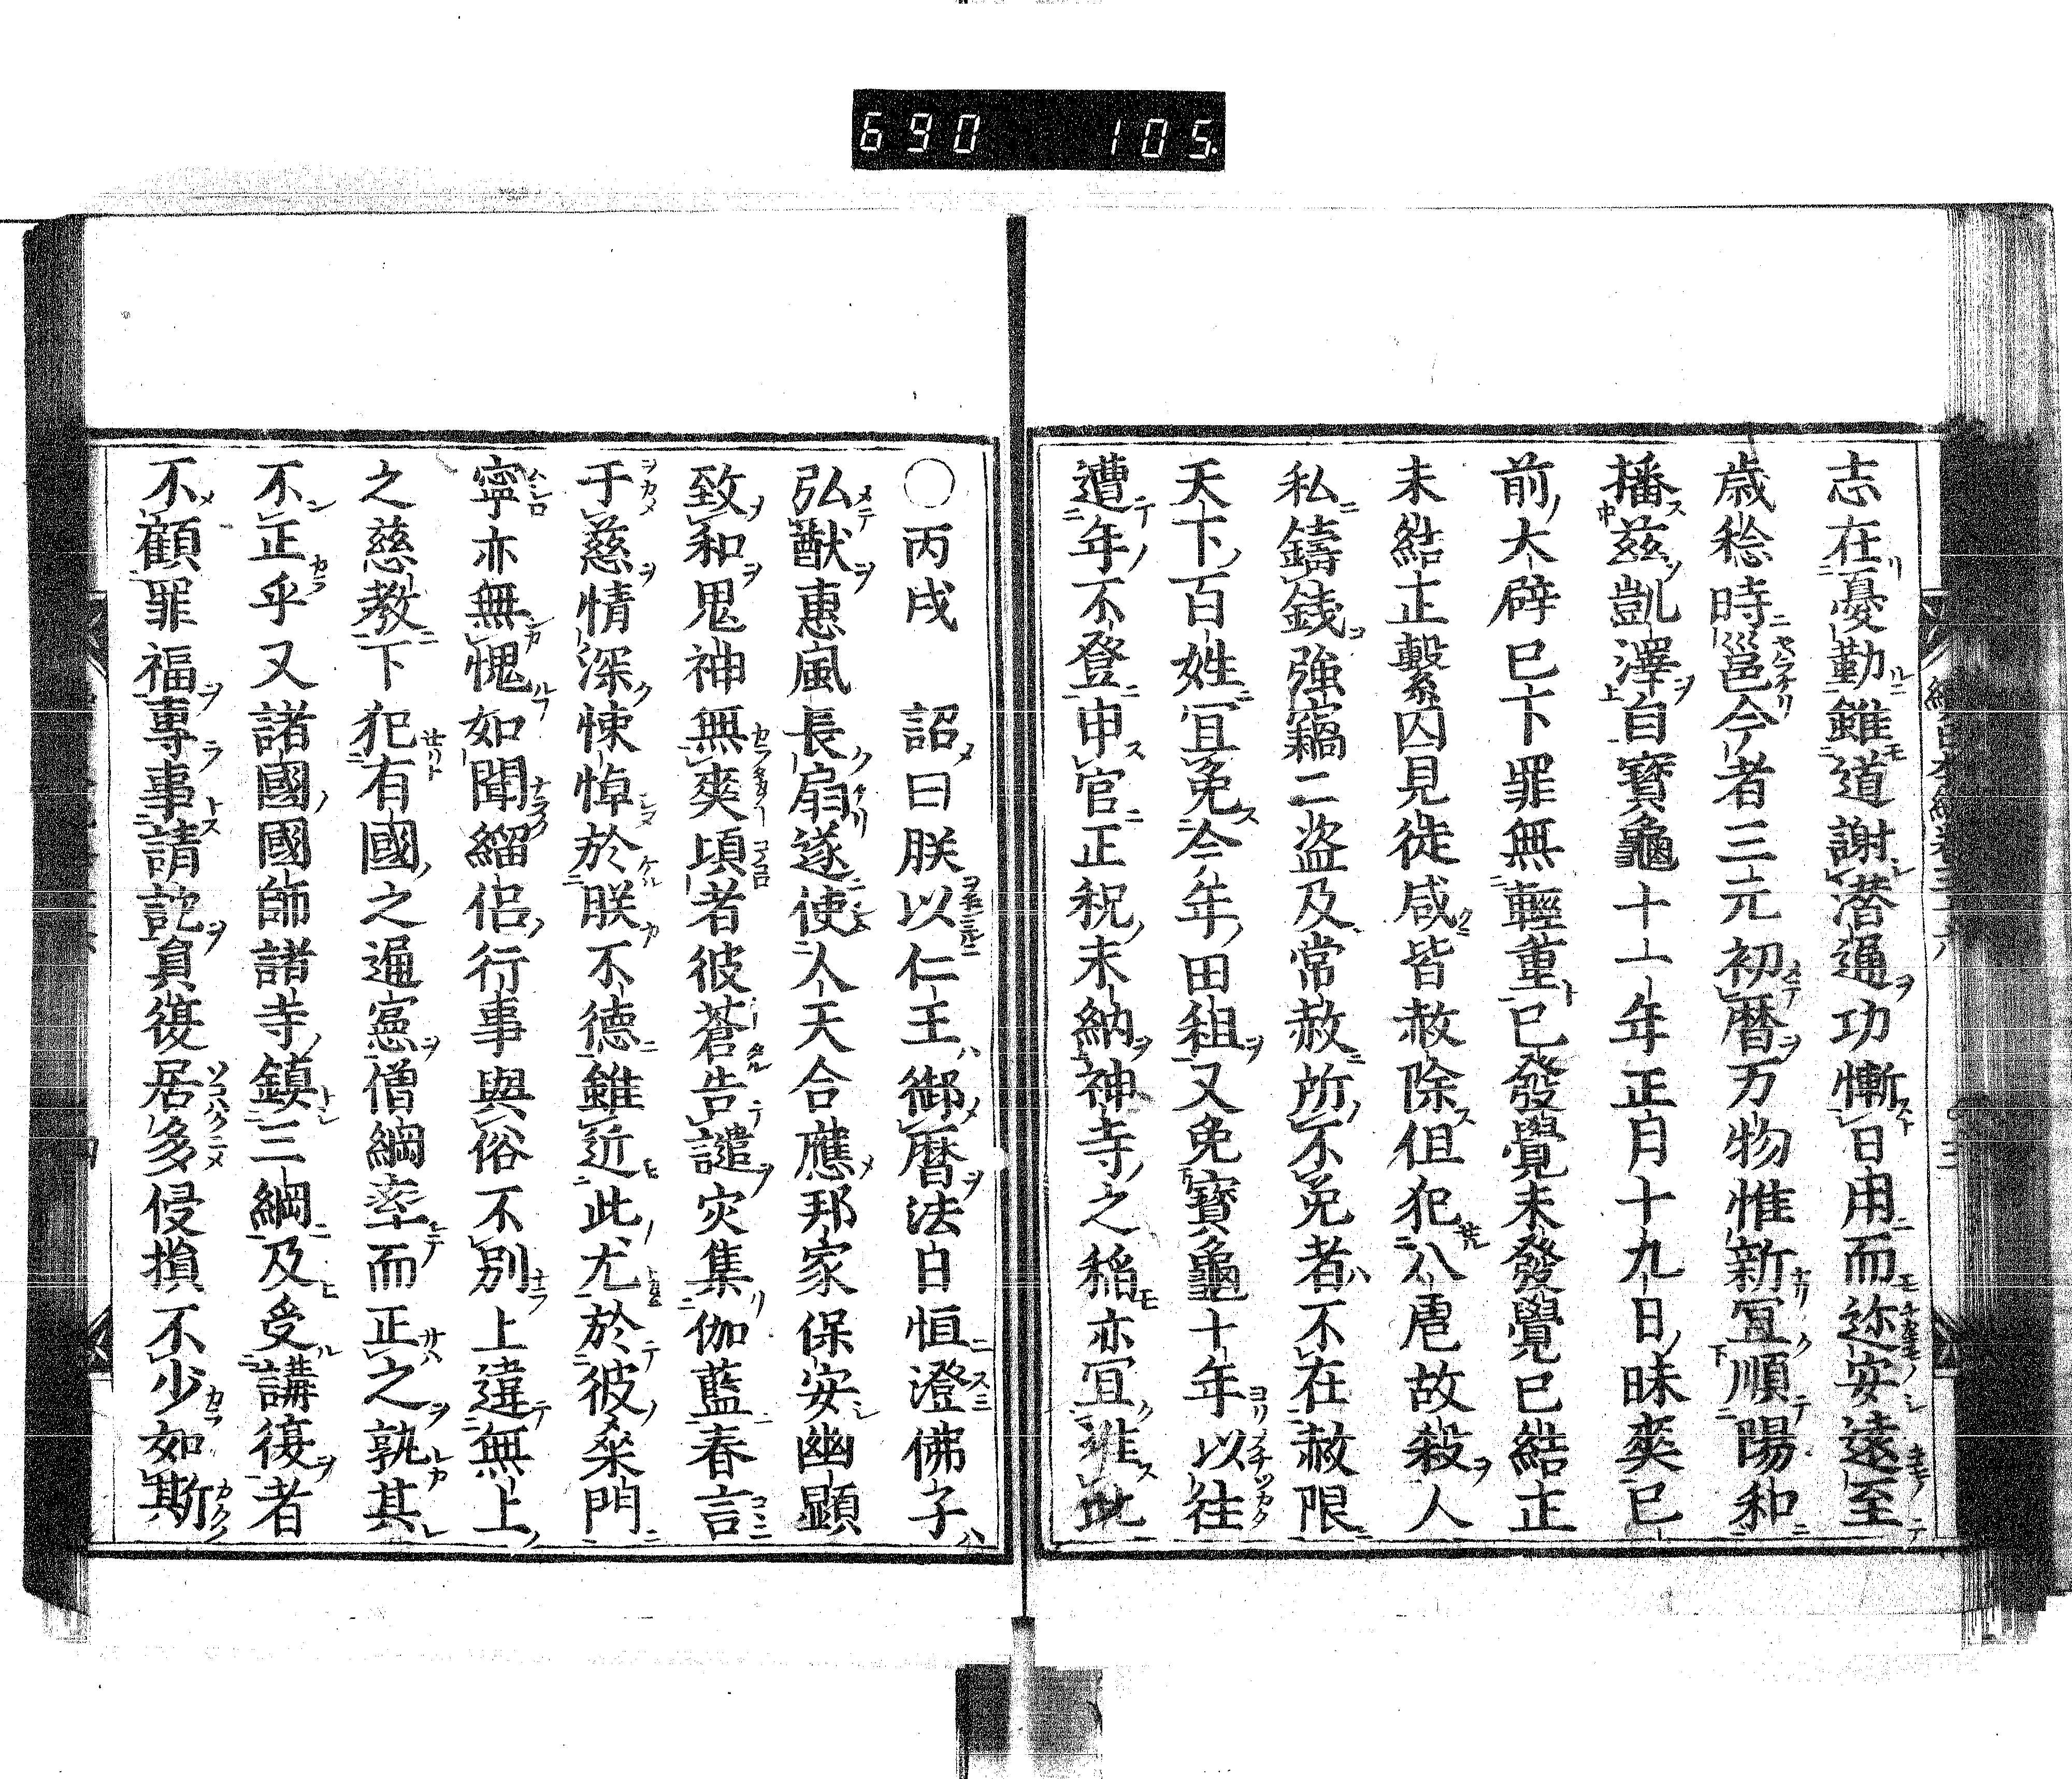 690 105
志在憂勤雖道謝潜通功慚日用而迩安遠至
歳稔時邕今者三元初暦万物惟新冝順陽和
播茲凱澤自寳龜十一年正月十九日昧爽已
前大辟已下罪無輕重已發覺未發覺已結正
未結正繋囚見徒咸皆赦除但犯八虐故殺人
私鑄錢強竊二盗及常赦所不免者不在赦限
天下百姓冝免今年田租又免寳龜十年以往
遭年不登申官正税未納神寺之稲亦冝准此
○丙戌　詔曰朕以仁王御暦法日恒澄佛子
弘猷惠風長扇遂使人天合應邦家保安幽顕
致和鬼神無爽頃者彼蒼告譴灾集伽藍眷言
于慈情深悚悼於朕不德雖近此尤於彼桑門
寧亦無愧如聞緇侶行事與俗不別上違無上
之慈教下犯有國之通憲僧綱率而正之孰其
不正乎又諸國國師諸寺鎮三綱及受講復者
不顧罪福専事請託員復居多侵損不少如斯